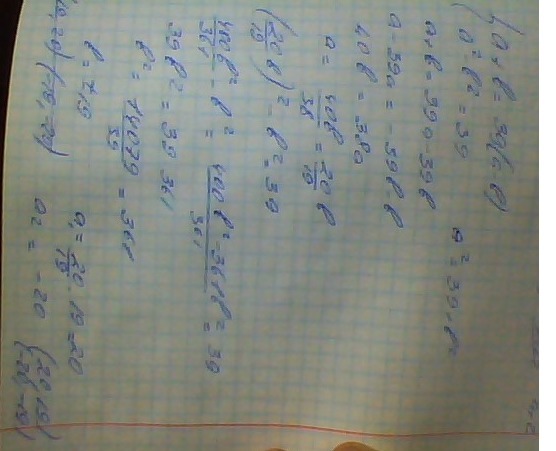 a+b=39(a-b)
a²-b²=39
a²=39+b²
a+b=39a-39b
a-39a=-39b-b
40b=38a
a=40b/38=20/19 b
(20b/19)²-b²=39
400b²/361-b²=400b²-361b²/361=39
39b²=39·361
b²=14079/39=361
b=±19
a₁=20/19·19=20
a₂=-20
(20;19)
(-20;-19)